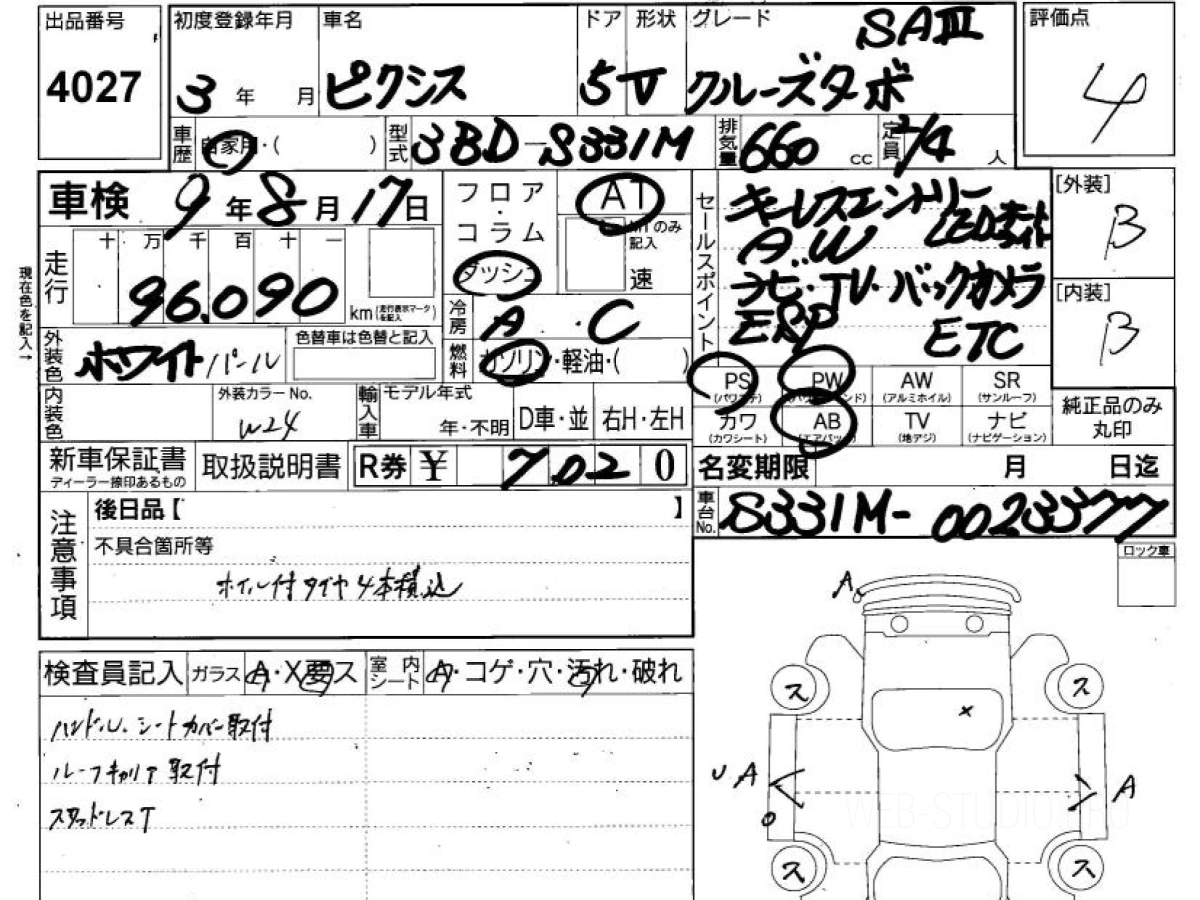 出品番号
4027
初度登録年月
3年 月
車名
ピクシス
ドア
5
形状
V
グレード
SAⅢ
クルーズターボ
評価点
4
車歴
自家用・( )
型式
3BD-S331M
排気量
660 cc
定員
2/4 人
車検 9年8月17日
フロア・コラム
ダッシュ
AT
MTのみ記入
速
セールスポイント
キーレスエントリー
A.W LEDオートライト
ナビ・TV・バックカメラ
ESP ETC
[外装]
B
[内装]
B
純正品のみ丸印
現在色を記入→
走行
十 万 千 百 十 一
96.090
km(走行表示マークを記入)
冷房
A・C
燃料
ガソリン・軽油・( )
外装色
ホワイトパール
色替車は色替と記入
内装色
外装カラーNo.
W24
輸入車
モデル年式
年・不明
D車・並
右H・左H
PS
(パワステ)
PW
(パワーウインド)
AW
(アルミホイル)
SR
(サンルーフ)
カワ
(カワシート)
AB
(エアバッグ)
TV
(地デジ)
ナビ
(ナビゲーション)
新車保証書
ディーラー捺印あるもの
取扱説明書
R券 ¥ 7,020
名変期限 月 日迄
車台No.
S331M-0023377
注意事項
後日品【 】
不具合箇所等
ホイル付タイヤ4本積込
ロック車
検査員記入
ガラス
A・X要ス
室内シート
A・コゲ・穴・汚れ・破れ
ハンドル、シートカバー取付
ルーフキャリア取付
スタッドレスT
A
ス
ス
×
UA
A
ス
ス
WEB-STUDIO.PRO